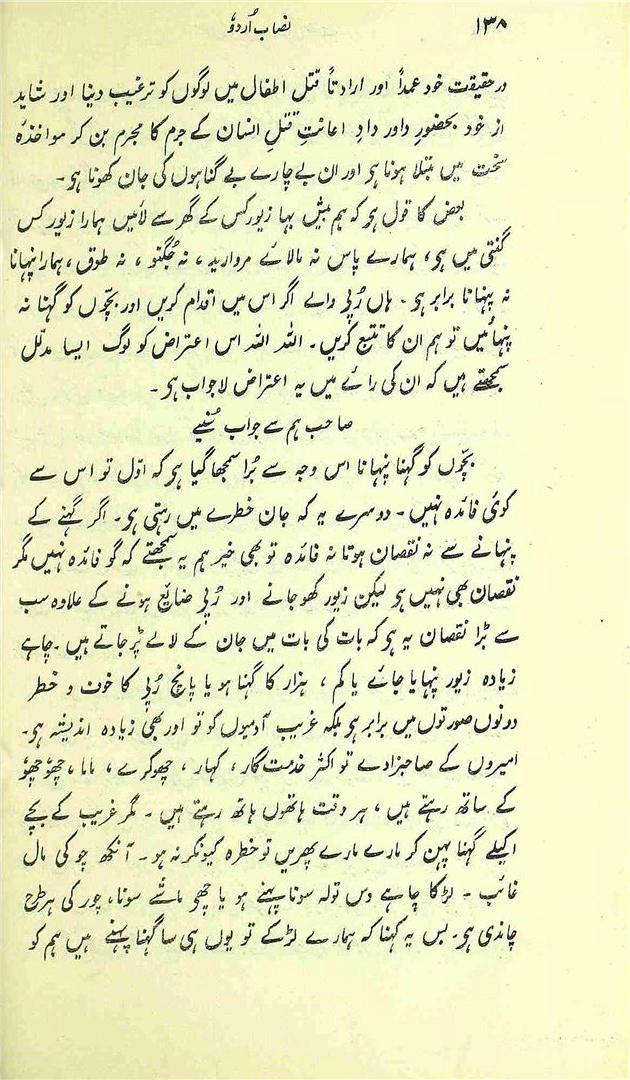 ۱۳۸
نصاب اُردوٗ
درحقیقت خود عمداً اور ارادتاً قتل اطفال میں لوگوں کو ترغیب دینا اور شاید
از خود بحضورِ داور دادِ اعانتِ قتلِ انسان کے جرم کا مجرم بن کر مواخذۂ
سخت میں مبتلا ہونا ہو اور ان بے چارے بے گناہوں کی جان کھونا ہو۔
بعض کا قول ہو کہ ہم بیش بہا زیور کس کے گھر سے لائیں ہمارا زیور کس
گنتی میں ہو، ہمارے پاس نہ مالائے مروارید، نہ جُگنو، نہ طوق، ہمارا پنہانا
نہ پنہانا برابر ہو۔ ہاں رُپی والے اگر اس میں اقدام کریں اور بچّوں کو گہنا نہ
پنہائیں تو ہم ان کا تتبع کریں۔ اللہ اللہ اس اعتراض کو لوگ ایسا مدلّل
سمجھتے ہیں کہ ان کی رائے میں یہ اعتراض لاجواب ہو۔
صاحب ہم سے جواب سُنیے
بچّوں کو گہنا پنہانا اس وجہ سے بُرا سمجھا گیا ہو کہ اوّل تو اس سے
کوئی فائدہ نہیں۔ دوسرے یہ کہ جان خطرے میں رہتی ہو۔ اگر گہنے کے
پنہانے سے نہ نقصان ہوتا نہ فائدہ تو بھی خیر ہم یہ سمجھتے کہ گو فائدہ نہیں مگر
نقصان بھی نہیں ہو لیکن زیور کھو جانے اور رُپی ضائع ہونے کے علاوہ سب
سے بڑا نقصان یہ ہو کہ بات کی بات میں جان کے لالے پڑ جاتے ہیں۔ چاہے
زیادہ زیور پنہایا جائے یا کم، ہزار کا گہنا ہو یا پانچ رُپی کا خوف و خطر
دونوں صورتوں میں برابر ہو بلکہ غریب آدمیوں کو تو اور بھی زیادہ اندیشہ ہو۔
امیروں کے صاحبزادے تو اکثر خدمت گار، کہار، چھوکرے، ماما، چھوچھو
کے ساتھ رہتے ہیں، ہر وقت ہاتھوں ہاتھ رہتے ہیں۔ مگر غریب کے بچے
اکیلے گہنا پہن کر مارے مارے پھریں تو خطرہ کیونکر نہ ہو۔ آنکھ چوکی مال
غائب۔ لڑکا چاہے دس تولہ سونا پہنے ہو یا چھو ماشے سونا، چور کی ہر طرح
چاندی ہو۔ بس یہ کہنا کہ ہمارے لڑکے تو یوں ہی سا گہنا پہنے ہیں ہم کو